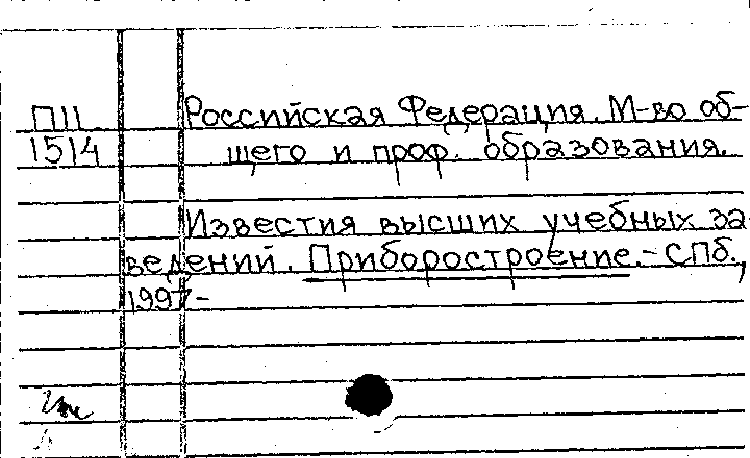 П11 Российская Федерация. М-во об-
1514 щего и проф. образования.
Известия высших учебных за-
ведений. Приборостроение. - СПб.,
1997-